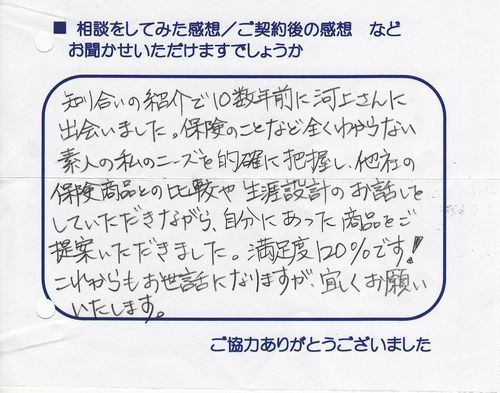 ■ 相談をしてみた感想／ご契約後の感想 など
お聞かせいただけますでしょうか
知り合いの紹介で10数年前に河上さんに
出会いました。保険のことなど全くわからない
素人の私のニーズを的確に把握し、他社の
保険商品との比較や生涯設計のお話しを
していただきながら、自分にあった商品をご
提案いただきました。満足度120%です!
これからもお世話になりますが、宜しくお願い
いたします。
ご協力ありがとうございました